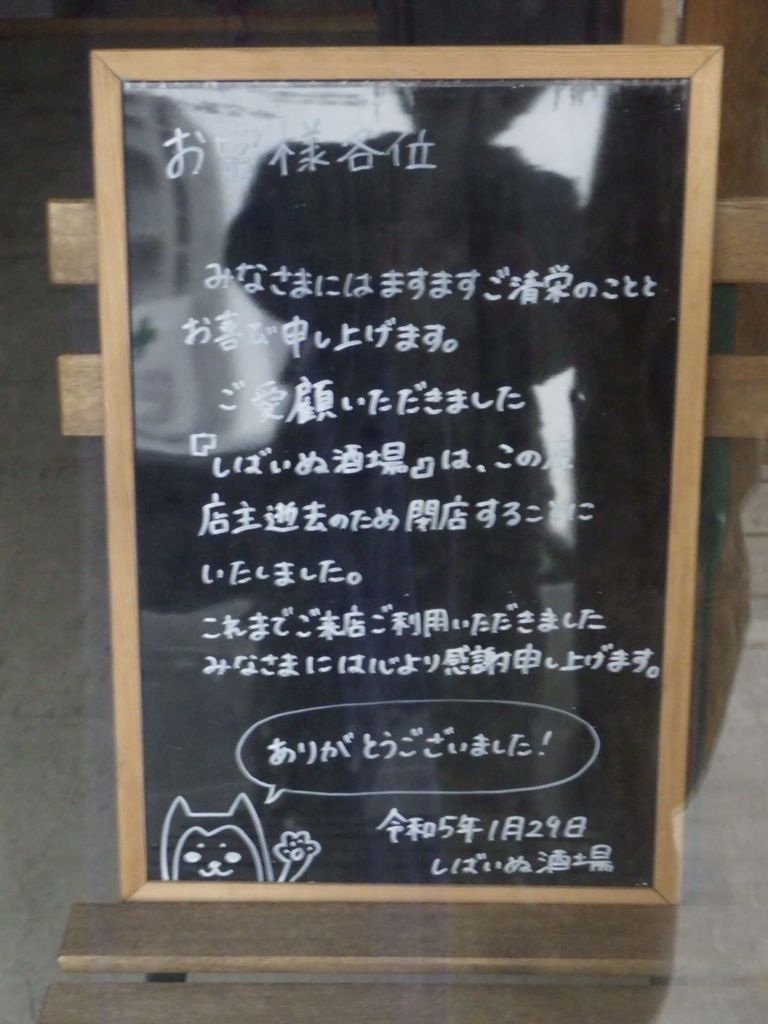 お客様各位
みなさまにはますますご清栄のことと
お喜び申し上げます。
ご愛顧いただきました
『しばいぬ酒場』は、この度
店主逝去のため閉店することに
いたしました。
これまでご来店ご利用いただきました
みなさまには心より感謝申し上げます。
ありがとうございました!
令和5年1月29日
しばいぬ酒場